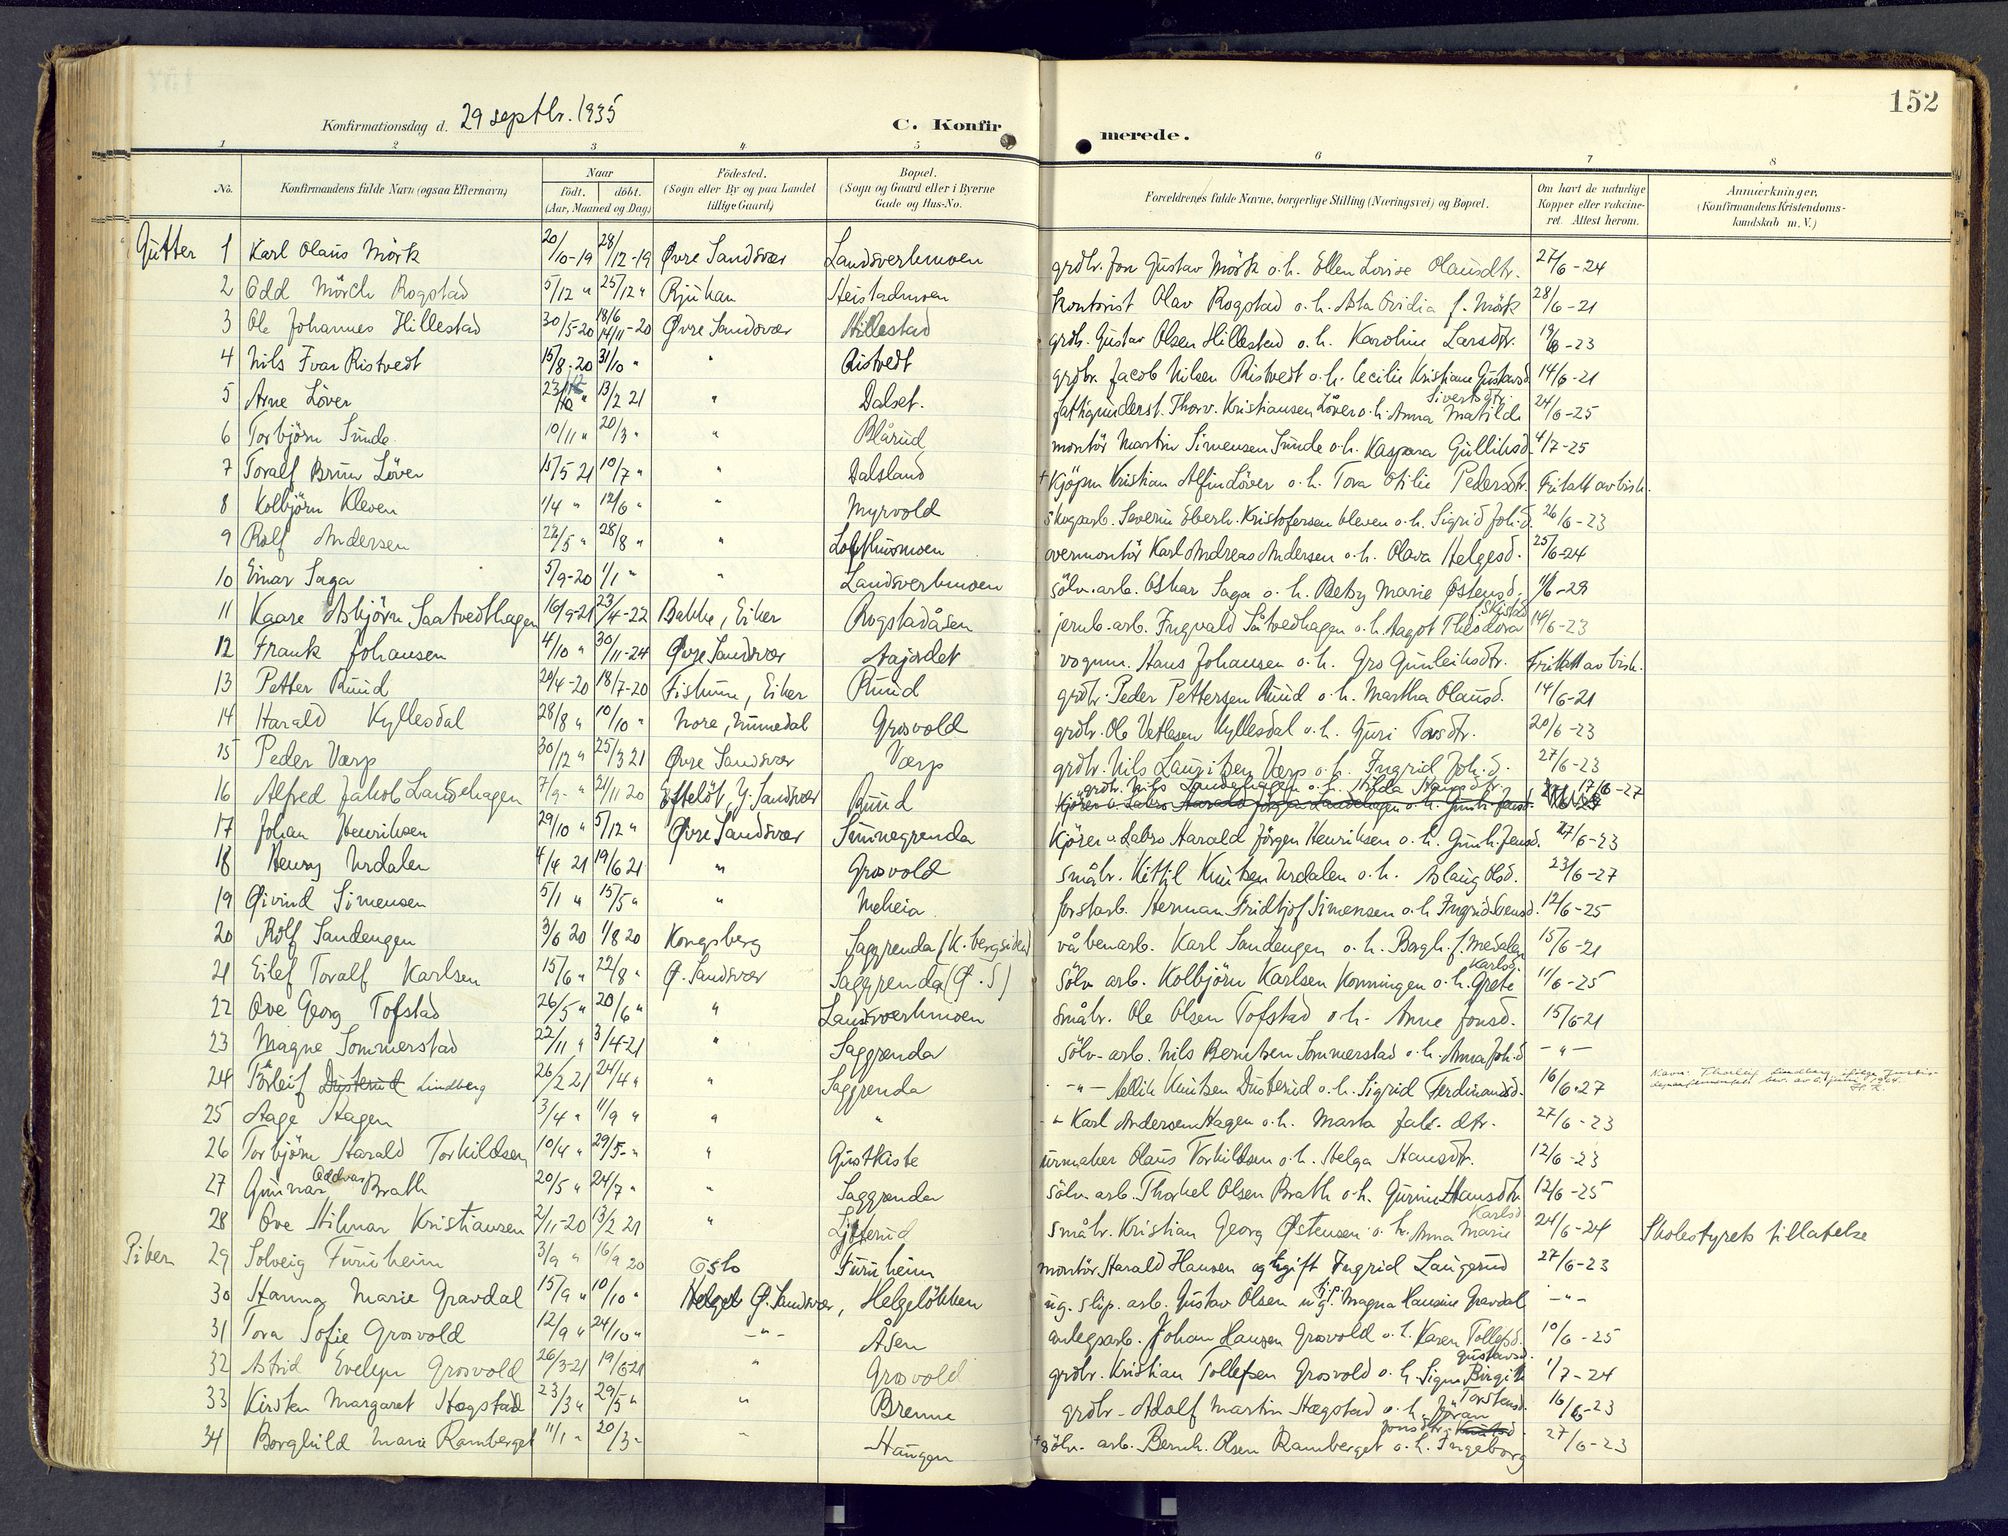 152
Konfirmationsdag d. 29 septbr. 1935 C. Konfirmerede.
1 2 3 4 5 6 7 8
No. Konfirmandens fulde Navn (ogsaa Efternavn) Naar født. døbt. (Aar, Maaned og Dag) Fødested. (Sogn eller By og paa Landet tillige Gaard) Bopæl. (Sogn og Gaard eller i Byerne Gade og Hus-No. Forældrenes fulde Navne, borgerlige Stilling (Næringsvei) og Bopæl. Om havt de naturlige Kopper eller vaccineret. Attest herom. Anmærkninger. (Konfirmandens Kristendomskundskab m. V.)
Gutter 1 Karl Olaus Mörk 20/10-19 28/12-19 Øvre Sandsvær Landsverkmoen grdbr. Jon Gustav Mörk o.h. Ellen Lovise Olausdtr. 27/6-24
2 Odd Mörch Rogstad 5/12 " 25/12 " Rjukan Heistadmoen Kontorist Olav Rogstad o.h. Asta Ovidia f. Mörk 28/6-21
3 Ole Johannes Hillestad 30/5-20 18/6 14/11-20 Øvre Sandsvær Hillestad grdb. Gustav Olsen Hillestad o.h. Karoline Larsdtr. 19/6-23
4 Nils Ivar Ristvedt 15/8-20 31/10 " " Ristvedt grdbr. Jacob Nilsen Ristvedt o.h. Cecilie Kristiane Gustavsd. 14/6-21
5 Arne Löver 13/2 21 " Dalset. fattigunderst. Thorv. Kristiansen Löver o.h. Anna Matilde Sivertsdtr. 24/6-25
6 Torbjörn Sunde 10/11 " 20/3 " " Blårud montör Martin Simensen Sunde o.h. Kaspara Gulliksd. 4/7-25
7 Toralf Brun Löver 15/5 21 10/7 " " Dalsland + Kjöpm Kristian Alfin Löver o.h. Tora Otilie Pedersdtr. Fritatt av bisk.
8 Kolbjörn Kleven 1/4 " 12/6 " " Myrvold Skogsarb. Severin Eberh. Kristofersen Kleven o.h. Sigrid Joh.d. 26/6-23
9 Rolf Andersen 22/5 " 28/8 " " Lofthusmoen overmontör Karl Andreas Andersen o.h. Olava Helgesd. 25/6-24
10 Einar Saga 5/9-20 1/1 " " Landsverkmoen sölv.arb. Oskar Saga o.h. Betzy Marie Østensd. 11/6-29
11 Kaare Asbjörn Saatvedthagen 16/9-21 23/4-22 Bakke, Eiker Rogstadåsen jernb.arb. Ingvald Såtvedhagen o.h. Aagot Theodora 14/6-23
12 Frank Johansen 4/10 " 30/11-24 Øvre Sandsvær Aajordet vognm. Hans Johansen o.h. Gro Gunleiksdtr. Fritatt av bisk.
13 Petter Ruud 20/4-20 18/7-20 Fiskum, Eiker Ruud grdbr. Peder Pettersen Ruud o.h. Martha Olausd. 14/6-21
14 Harald Kyllesdal 28/8 " 10/10 " Nore, Numedal Grosvold grdbr. Ole Vetlesen Kyllesdal o.h. Guri Torsdtr. 20/6-23
15 Peder Værp 30/12 " 25/3 21 Øvre Sandsvær Værp grdbr. Nils Lauritzen Værp o.h. Ingrid Joh.d. 27/6-23
16 Alfred Jakob Landehagen 7/9 - " 21/11 20 Efteløt, Y. Sandsvær Ruud grdbr. Nils Landehagen o.h. Hilda Hansdtr. 17/6-27
17 Johan Henriksen 29/10 " 5/12 " Øvre Sandsvær Simnegrenda Kjörer v. Labro Harald Jörgen Henriksen o.h. Gunh. Jensd. 27/6-23
18 Henry Urdalen 4/4 21 19/6 21 " Grosvold småbr. Kittil Knutsen Urdalen o.h. Aslaug Olsd. 23/6-27
19 Øivind Simensen 5/1 " 15/5 " " Meheia forstarb. Herman Fridtjof Simensen o.h. Ingrid 12/6-25
20 Rolf Sandengen 3/6 20 1/8 20 Kongsberg Saggrenda (K.bergsiden) våbenarb. Karl Sandengen o.h. Borgh. f. Medalen 15/6-21
21 Eilef Toralf Karlsen 15/6 " 22/8 " Ø. Sandsvær Saggrenda (Ø.S) Sölv arb. Kolbjörn Karlsen Konningen o.h. Grete Karlsd. 11/6-25
22 Ove Georg Tofstad 26/5 " 20/6 " " Landsverkmoen Småbr. Ole Olsen Tofstad o.h. Anne Jonsd. 15/6-21
23 Magne Sommerstad 22/11 " 3/4-21 " Saggrenda sölv-arb. Nils Berntsen Sommerstad o.h. Anna Joh.d - " -
24 Torleif Dusterud Lindberg 26/2 21 24/4 " " Saggrenda - " - Kittil Knutsen Dusterud o.h. Sigrid Ferdinandsd. 16/6-27 Navn: Thorleif Lindberg ifölge justisdepartementets bev. av 6. juni 1924. H.K.
25 Aage Hagen 3/4 " 11/9 " " " - " Karl Andersen Hagen o.h. Marta Jak. dtr. 27/6-23
26 Torbjörn Harald Torkildsen 10/4 " 29/5- " " Gustkiste urmaker Olaus Torkildsen o.h. Helga Hansdtr. 12/6-23
27 Gunnar Oddvar Brath 20/5 " 24/7 " " Saggrenda sölv.arb. Thorkel Olsen Brath o.h. Hansdtr 12/6-25
28 Ove Hilmar Kristiansen 2/11-20 13/2 21 " Ljøterud småbr. Kristian Georg Østensen o.h. Anna Marie Karlsd 24/6-24 Skolestyrets tillatelse
Piker 29 Solveig Furuheim 3/9 " 16/9 20 Oslo Furuheim montör Harald Hansen og hgift Ingrid Laugerud 27/6-23
30 Hanna Marie Gravdal 15/9 " 10/10 " Ø. Sandsvær, Helgelökken ug. slip. arb. Gustav Olsen ug. p. Magna Hansine Gravdal - " -
31 Tora Sofie Grosvold 12/9 " 24/10 " - " - Åsen anlegsarb. Johan Hansen Grosvold o.h. Karen Tollefsd. 10/6-25
32 Astrid Evelyn Grosvold 26/3-21 19/6 21 " Grosvold grdbr. Kristian Tollefsen Grosvold o.h. Signe Birgit Gustavsd. 1/7-24
33 Kirsten Margaret Hægstad 23/3 " 29/5 " " Brenne grdbr - Adolf Martin Hægstad o.h. Jöran Torstensd. 16/6-23
34 Borghild Marie Ramberget 11/1 - 20/3 - " Haugen + sölv. arb. Bernh. Olsen Ramberget o.h. Ingeborg Jonsdtr. Knutsd. 27/6-23